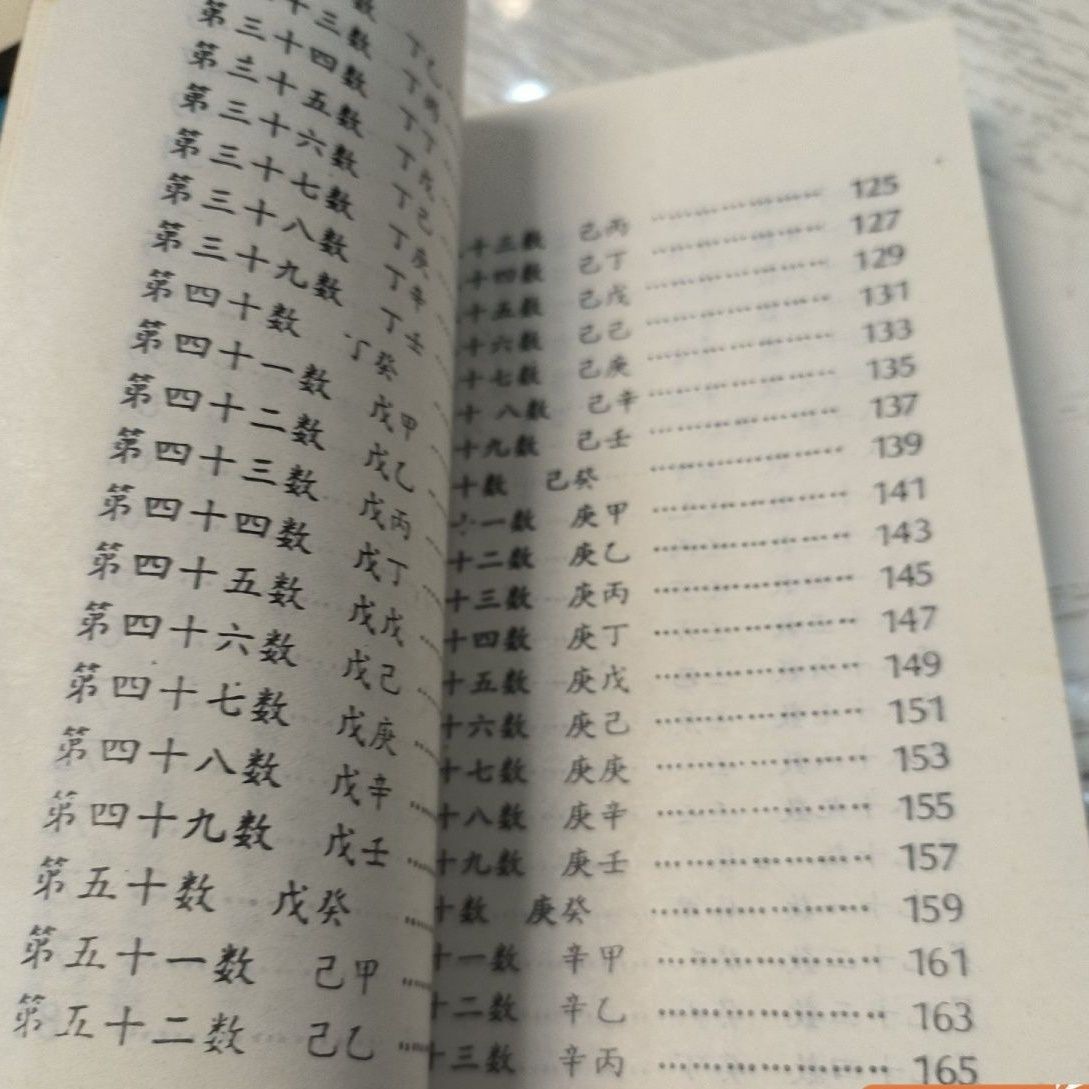 十三数 丁
第三十四数 丁
第三十五数 丁丁
第三十六数 丁戊
第三十七数 丁己
第三十八数 丁庚
第三十九数 丁辛
第四十数 丁壬
第四十一数 丁癸
第四十二数 戊甲
第四十三数 戊乙
第四十四数 戊丙
第四十五数 戊丁
第四十六数 戊戊
第四十七数 戊己
第四十八数 戊庚
第四十九数 戊辛
第五十数 戊壬
第五十一数 戊癸
第五十二数 己甲
己乙
十三数 己丙 125
十四数 己丁 127
十五数 己戊 129
十六数 己己 131
十七数 己庚 133
十八数 己辛 135
十九数 己壬 137
十数 己癸 139
一数 庚甲 141
十二数 庚乙 143
十三数 庚丙 145
十四数 庚丁 147
十五数 庚戊 149
十六数 庚己 151
十七数 庚庚 153
十八数 庚辛 155
十九数 庚壬 157
十数 庚癸 159
十一数 辛甲 161
十二数 辛乙 163
十三数 辛丙 165